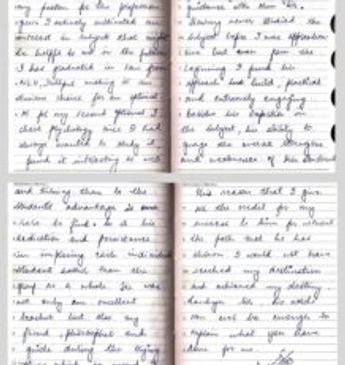 my passion for the profession
years I actively cultivated an
interest in subjects that might
be helpful to me in the future
I had graduated in law from
NLU, Jodhpur making it an
obvious choice for an optional.
As for my second optional I
chose Psychology since I had
always wanted to study it,
found it interesting as well
guidance with Mam Sir.
Having never studied the
subject before I was apprehensive
but
beginning I found his
approach and practical
and extremely engaging
besides his expertise on
the subject, his ability to
gauge the overall strengths
and weaknesses of his students
and turning them to the
students advantage is
rare to find. So is his
dedication and persistence
in improving each individual
student rather than the
group as a whole. He was
not only an excellent
teacher but also my
friend, philosopher and
guide during the trying
this reason that I give
all the credit for my
success to him for without
the path that he has
shown I would not have
reached my destination
and achieved my destiny.
Thankyou Sir, no words
can ever be enough to
explain what you have
done for me.